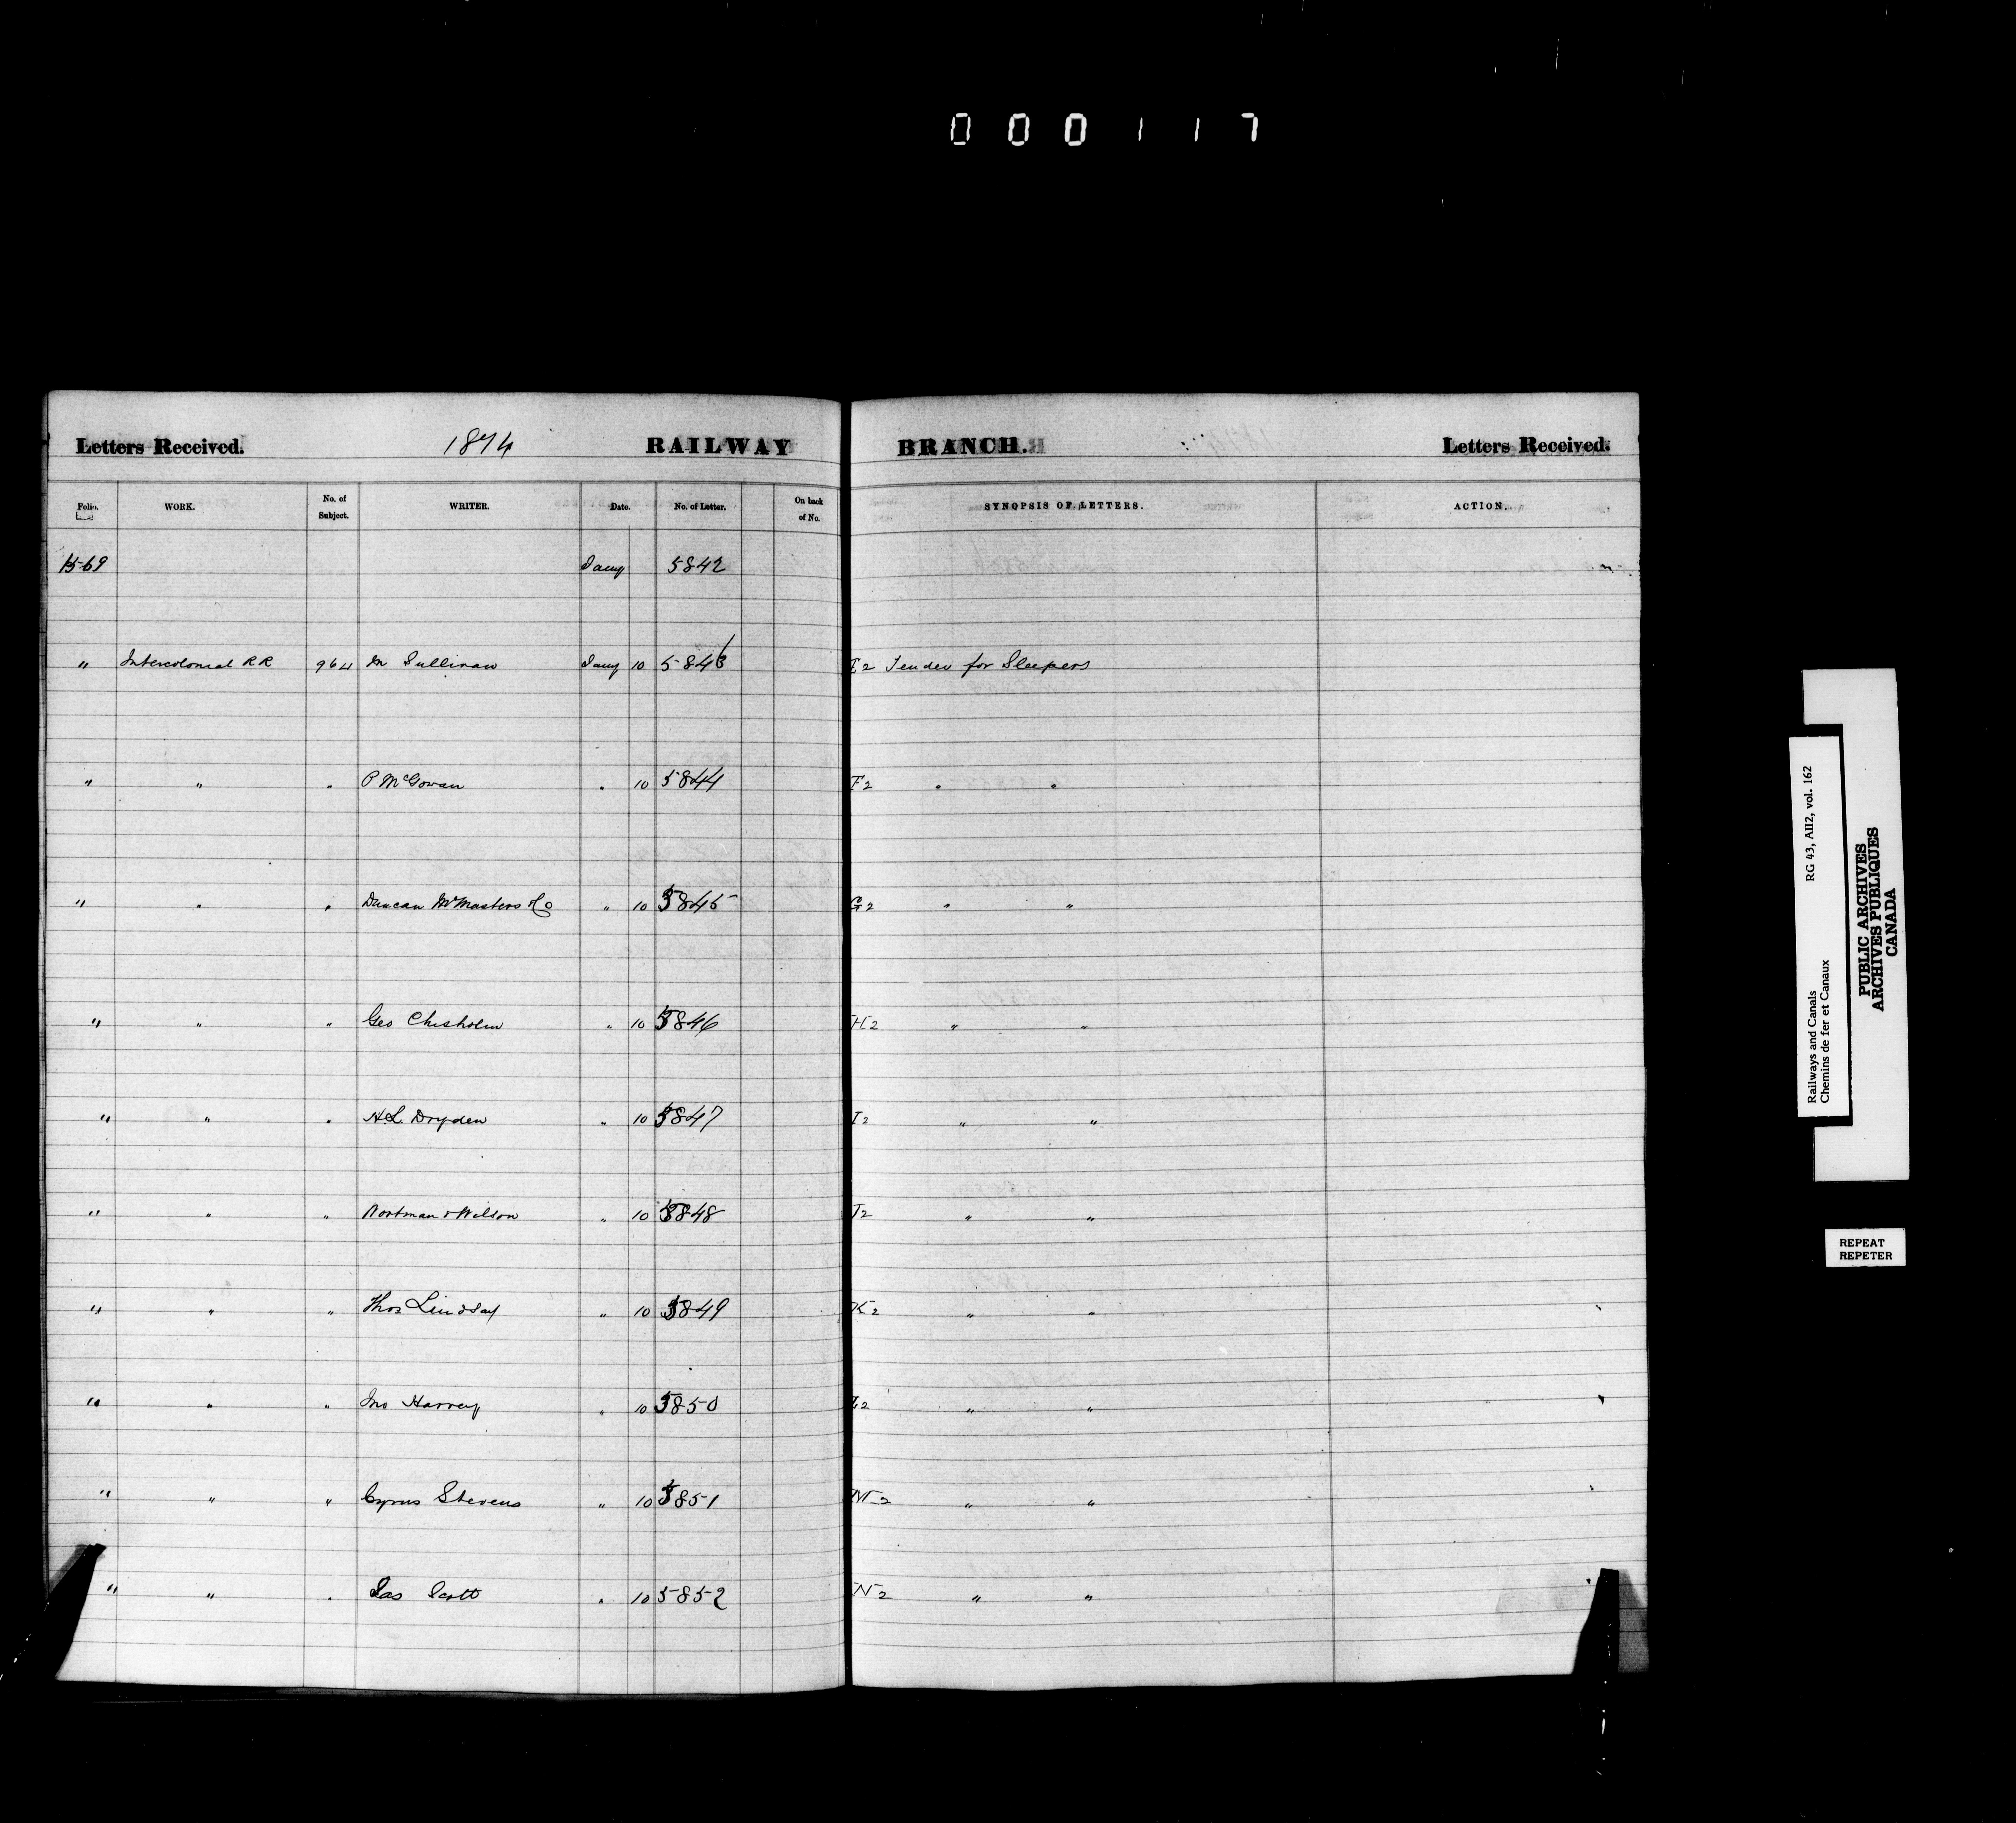 000117
Letters Received. 1874 RAILWAY BRANCH. Letters Received.
Folio. WORK. No. of Subject. WRITER. Date. No. of Letter. On back of No. SYNOPSIS OF LETTERS. ACTION.
1569 Jany 5842
" Intercolonial RR 964 M Sullivan Jany 10 5843 E2 Tender for Sleepers
" " " P McGowan " 10 5844 F2 " "
" " " Duncan McMasters & Co " 10 5845 G2 " "
" " " Geo Chisholm " 10 5846 H2 " "
" " " H.L. Dryden " 10 5847 I2 " "
" " " & Wilson " 10 5848 J2 " "
" " " Thos Lindsay " 10 5849 K2 " "
" " " Jno Harvey " 10 5850 L2 " "
" " " Cyrus Stevens " 10 5851 M2 " "
" " " Jas Scott " 10 5852 N2 " "
Railways and Canals RG 43, AII2, vol. 162
Chemins de fer et Canaux
PUBLIC ARCHIVES
ARCHIVES PUBLIQUES
CANADA
REPEAT
REPETER